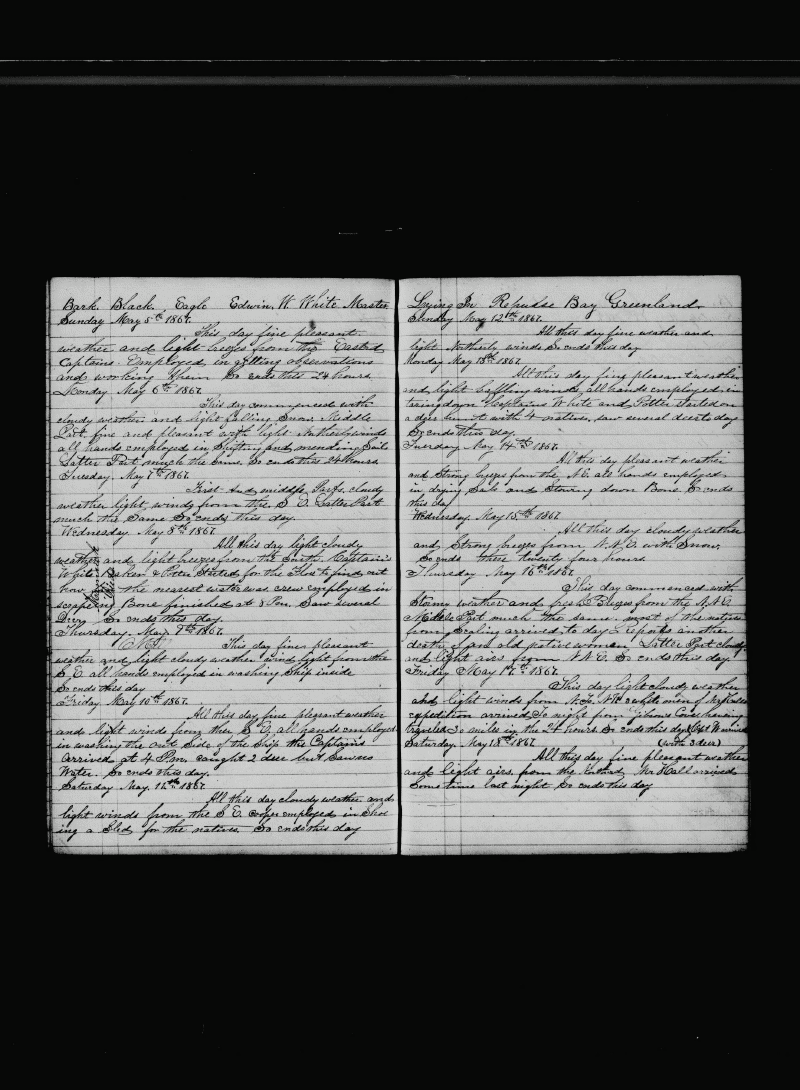 Bark Black Eagle Edwin. W White Master
Sunday May 5th 1867.
This day fine pleasant
weather and light breezes from the Eastard
Captains Employed in getting observations
and working them So ends this 24 hours
Monday May 6th 1867
This day commenced with
cloudy weather and light falling Snow. Middle
Part fine and pleasant with light Notherly winds
all hands employed in and mending Sails
Latter Part much the Same So ends this 24 hours
Tuesday. May 7th 1867.
First And middle Parts. cloudy
weather light winds from the S E. Latter Part
much the Same So ends this day.
Wednesday May 8th 1867.
All this day light cloudy
weather and light breezes from the South. Captains
White Baker & Potter Started for the Floe to find out
how the nearest water was crew employed in
scrapeing Bone finished at 8 Pm. Saw several
Deer, So ends this day.
Thursday. May 9th 1867.
This day fine pleasant
weather and light cloudy weather wind light from the
S E. all hands employed in washing Ship inside
So ends this day
Friday May 10th 1867.
All this day fine pleasant weather
and light winds from the S E, all hands employed
in washing the out Side of the Ship the Captains
arrived at 4 Pm. caught 2 deer but Saw no
Water. So ends this day.
Saturday May. 11th 1867
All this day cloudy weather and
light winds from the S E. Cooper employed in Shoe
ing a Sled for the natives. So ends this day
Lying In Repulse Bay Greenland
Sunday May 12th 1867.
All this day fine weather and
light Notherly winds So ends this day
Monday May 13th 1867
All this day fine pleasant weather
and light baffling winds, all hands employed in
Captains White and Potter Started on
a deer hunt with 4 natives, saw several deer to day
So ends this day.
Tuesday May 14th 1867.
All this day pleasant weather
and Strong breezes from the N.E. all hands employed
in drying Sails and Stowing down Bone So ends
this day
Wednesday. May 15th 1867
All this day cloudy weather
and Strong breezes from N.N.E. with Snow.
So ends these twenty four hours.
Thursday May 16th 1867
This day commenced with
Stormy weather and fresh Breezes from the N.N.E
Middle Part much the same. most of the natives
from Sealing arrived to day & reports another
death of an old native women Latter Part cloudy
and light airs from N.N.E. So ends this day
Friday May 17th 1867.
This day light cloudy weather
and light winds from 3 white men of Mr Halls
expedition arrived to night from Gibsons Cove haveing
traveled 30 miles in the 24 hours So ends this day Capt W arrived
Saturday. May 18th 1867 (with 3 deer)
All this day fine pleasant weather
and light airs from the Mr Hall arrived
Some time last night So ends this day